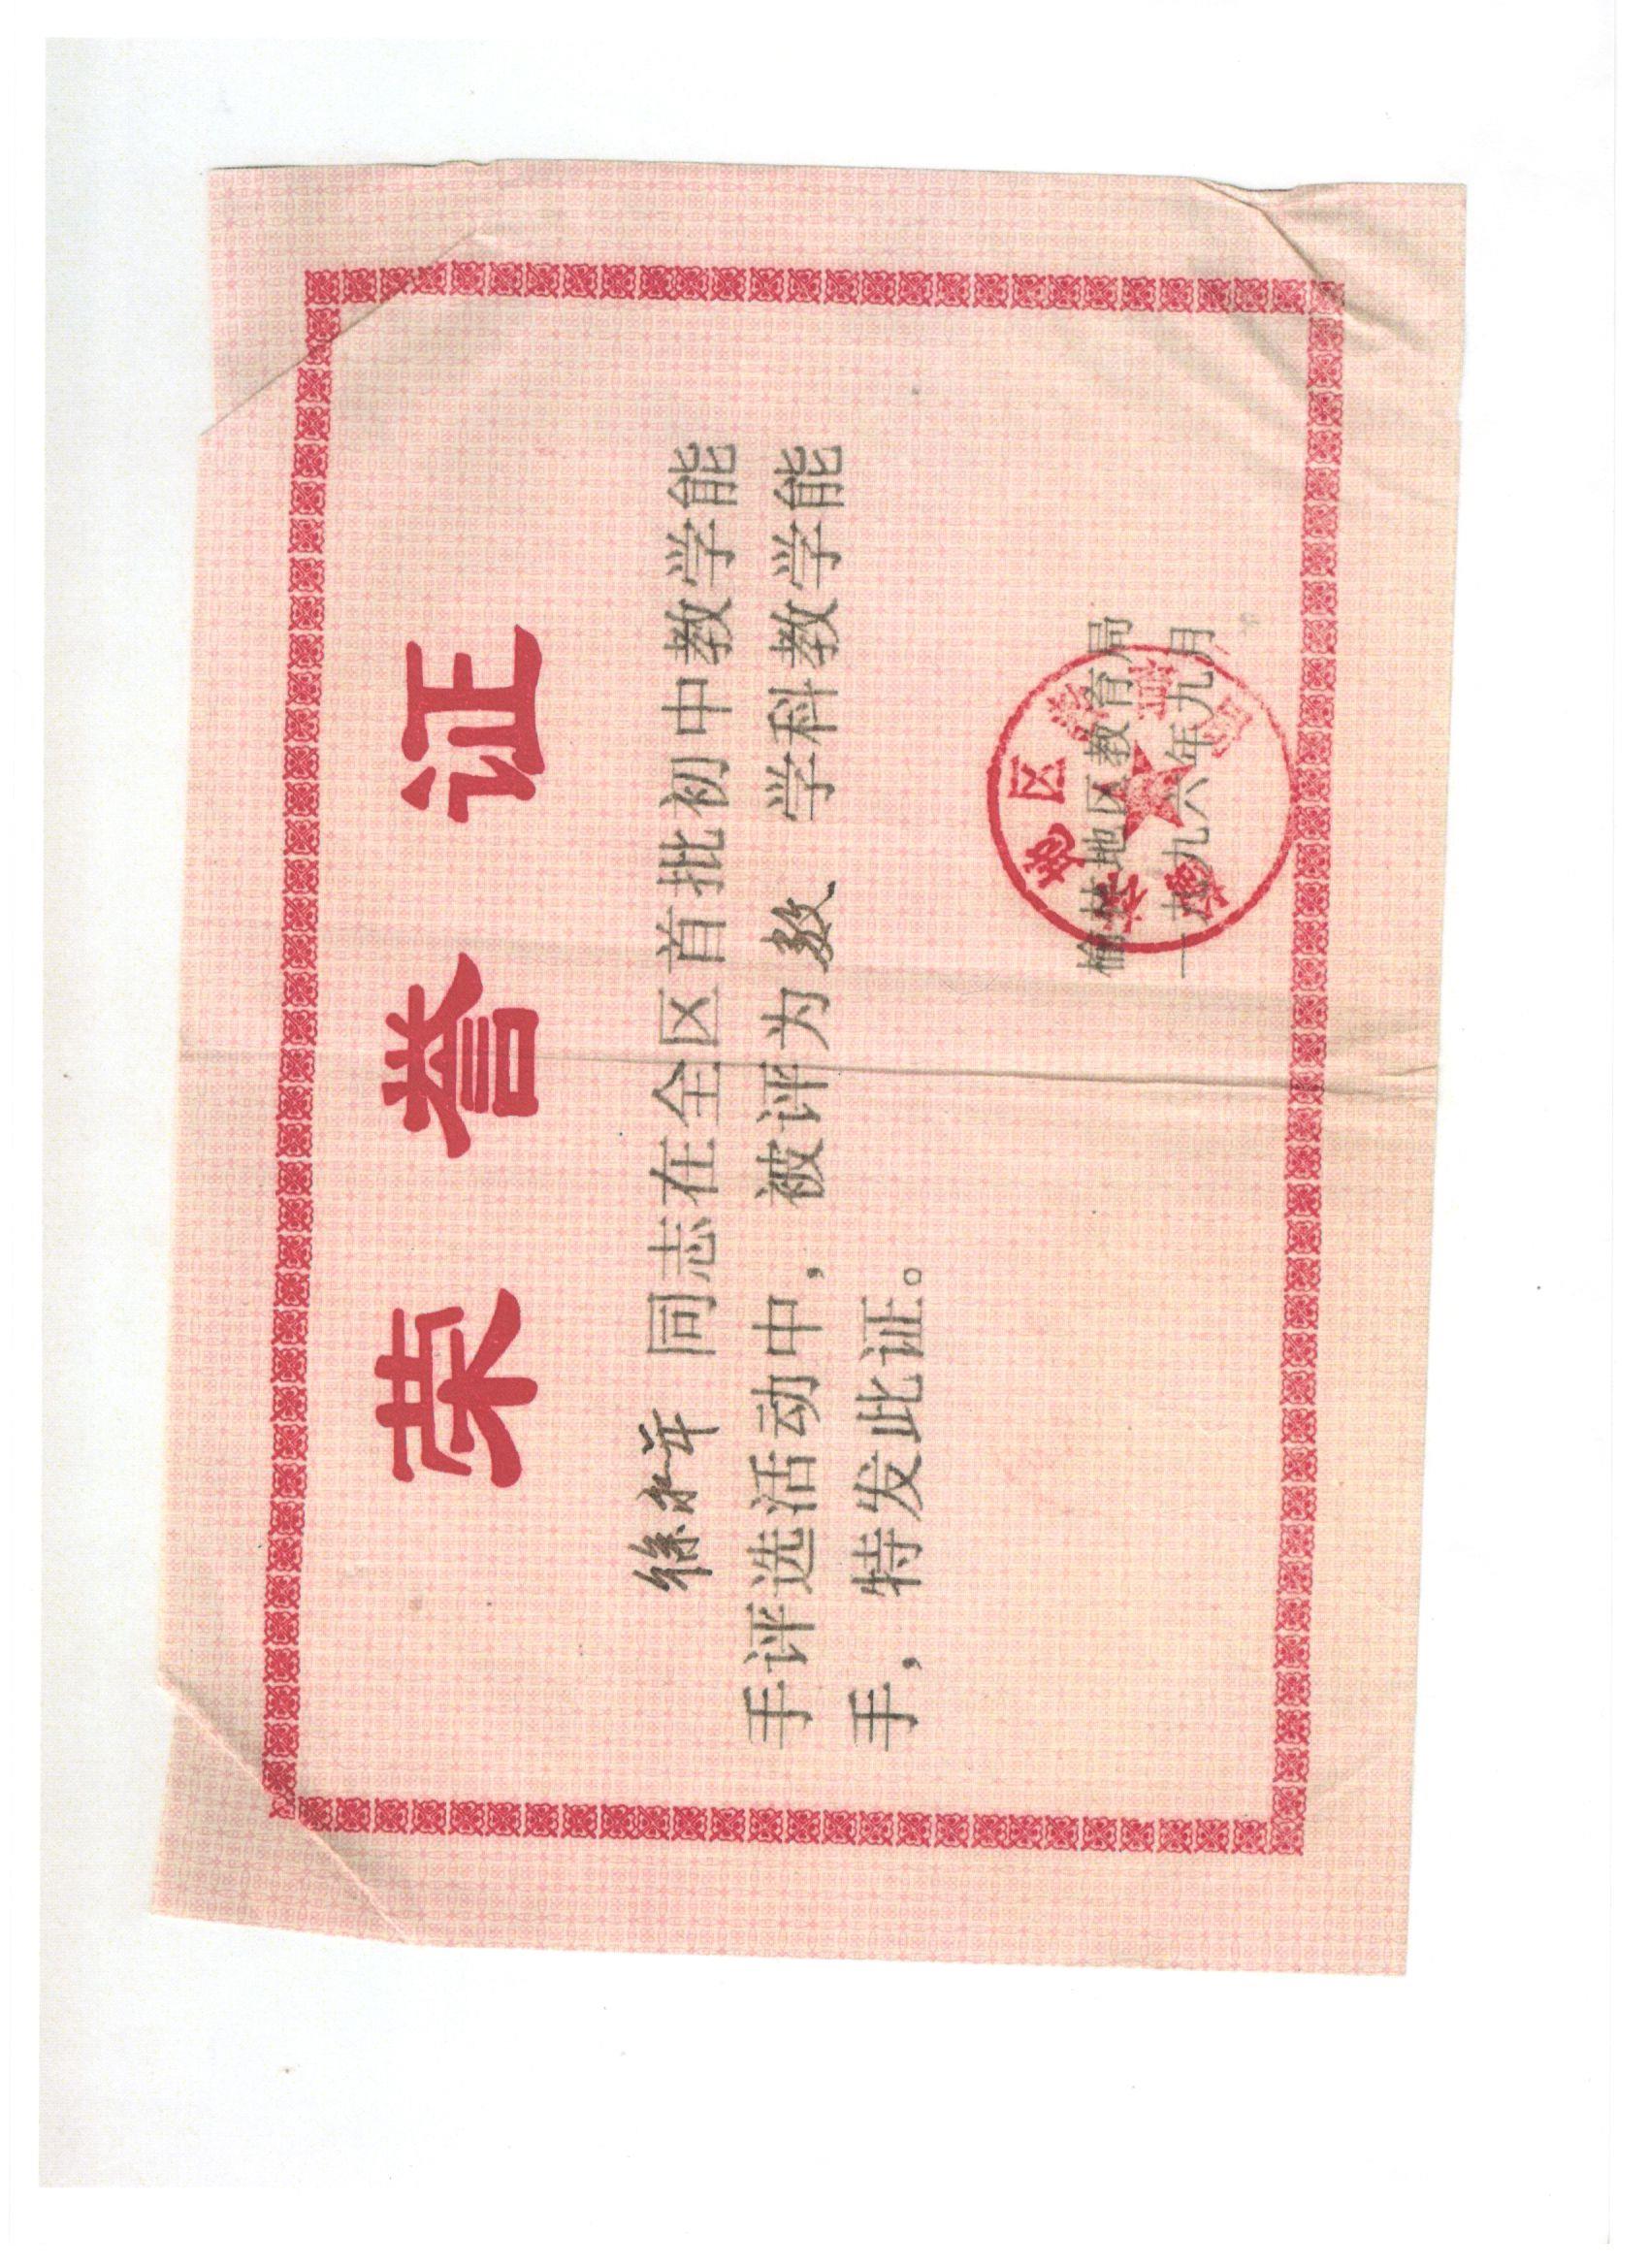 荣誉证
徐和平 同志在全区首批初中教学能
手评选活动中，被评为 数 学科教学能
手，特发此证。
榆林地区教育局
一九九六年九月
榆林地区教育局